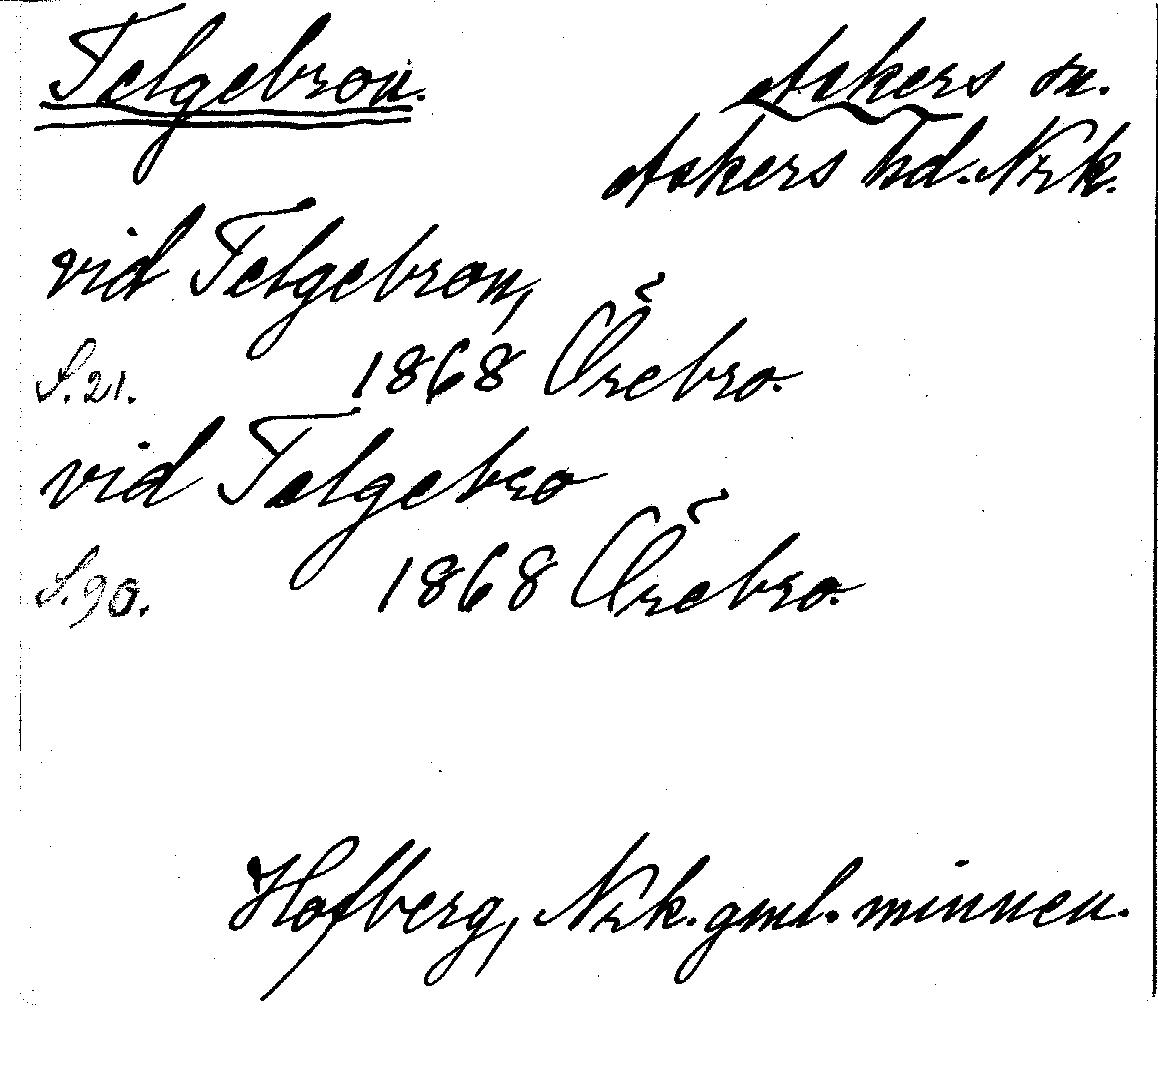 Telgebron.
Askers sn.
Askers hd. Nrk.
vid Telgebron,
S. 21. 1868 Örebro.
vid Telgebro
S. 90. 1868 Örebro.
Hofberg, Nrk. gml. minnen.